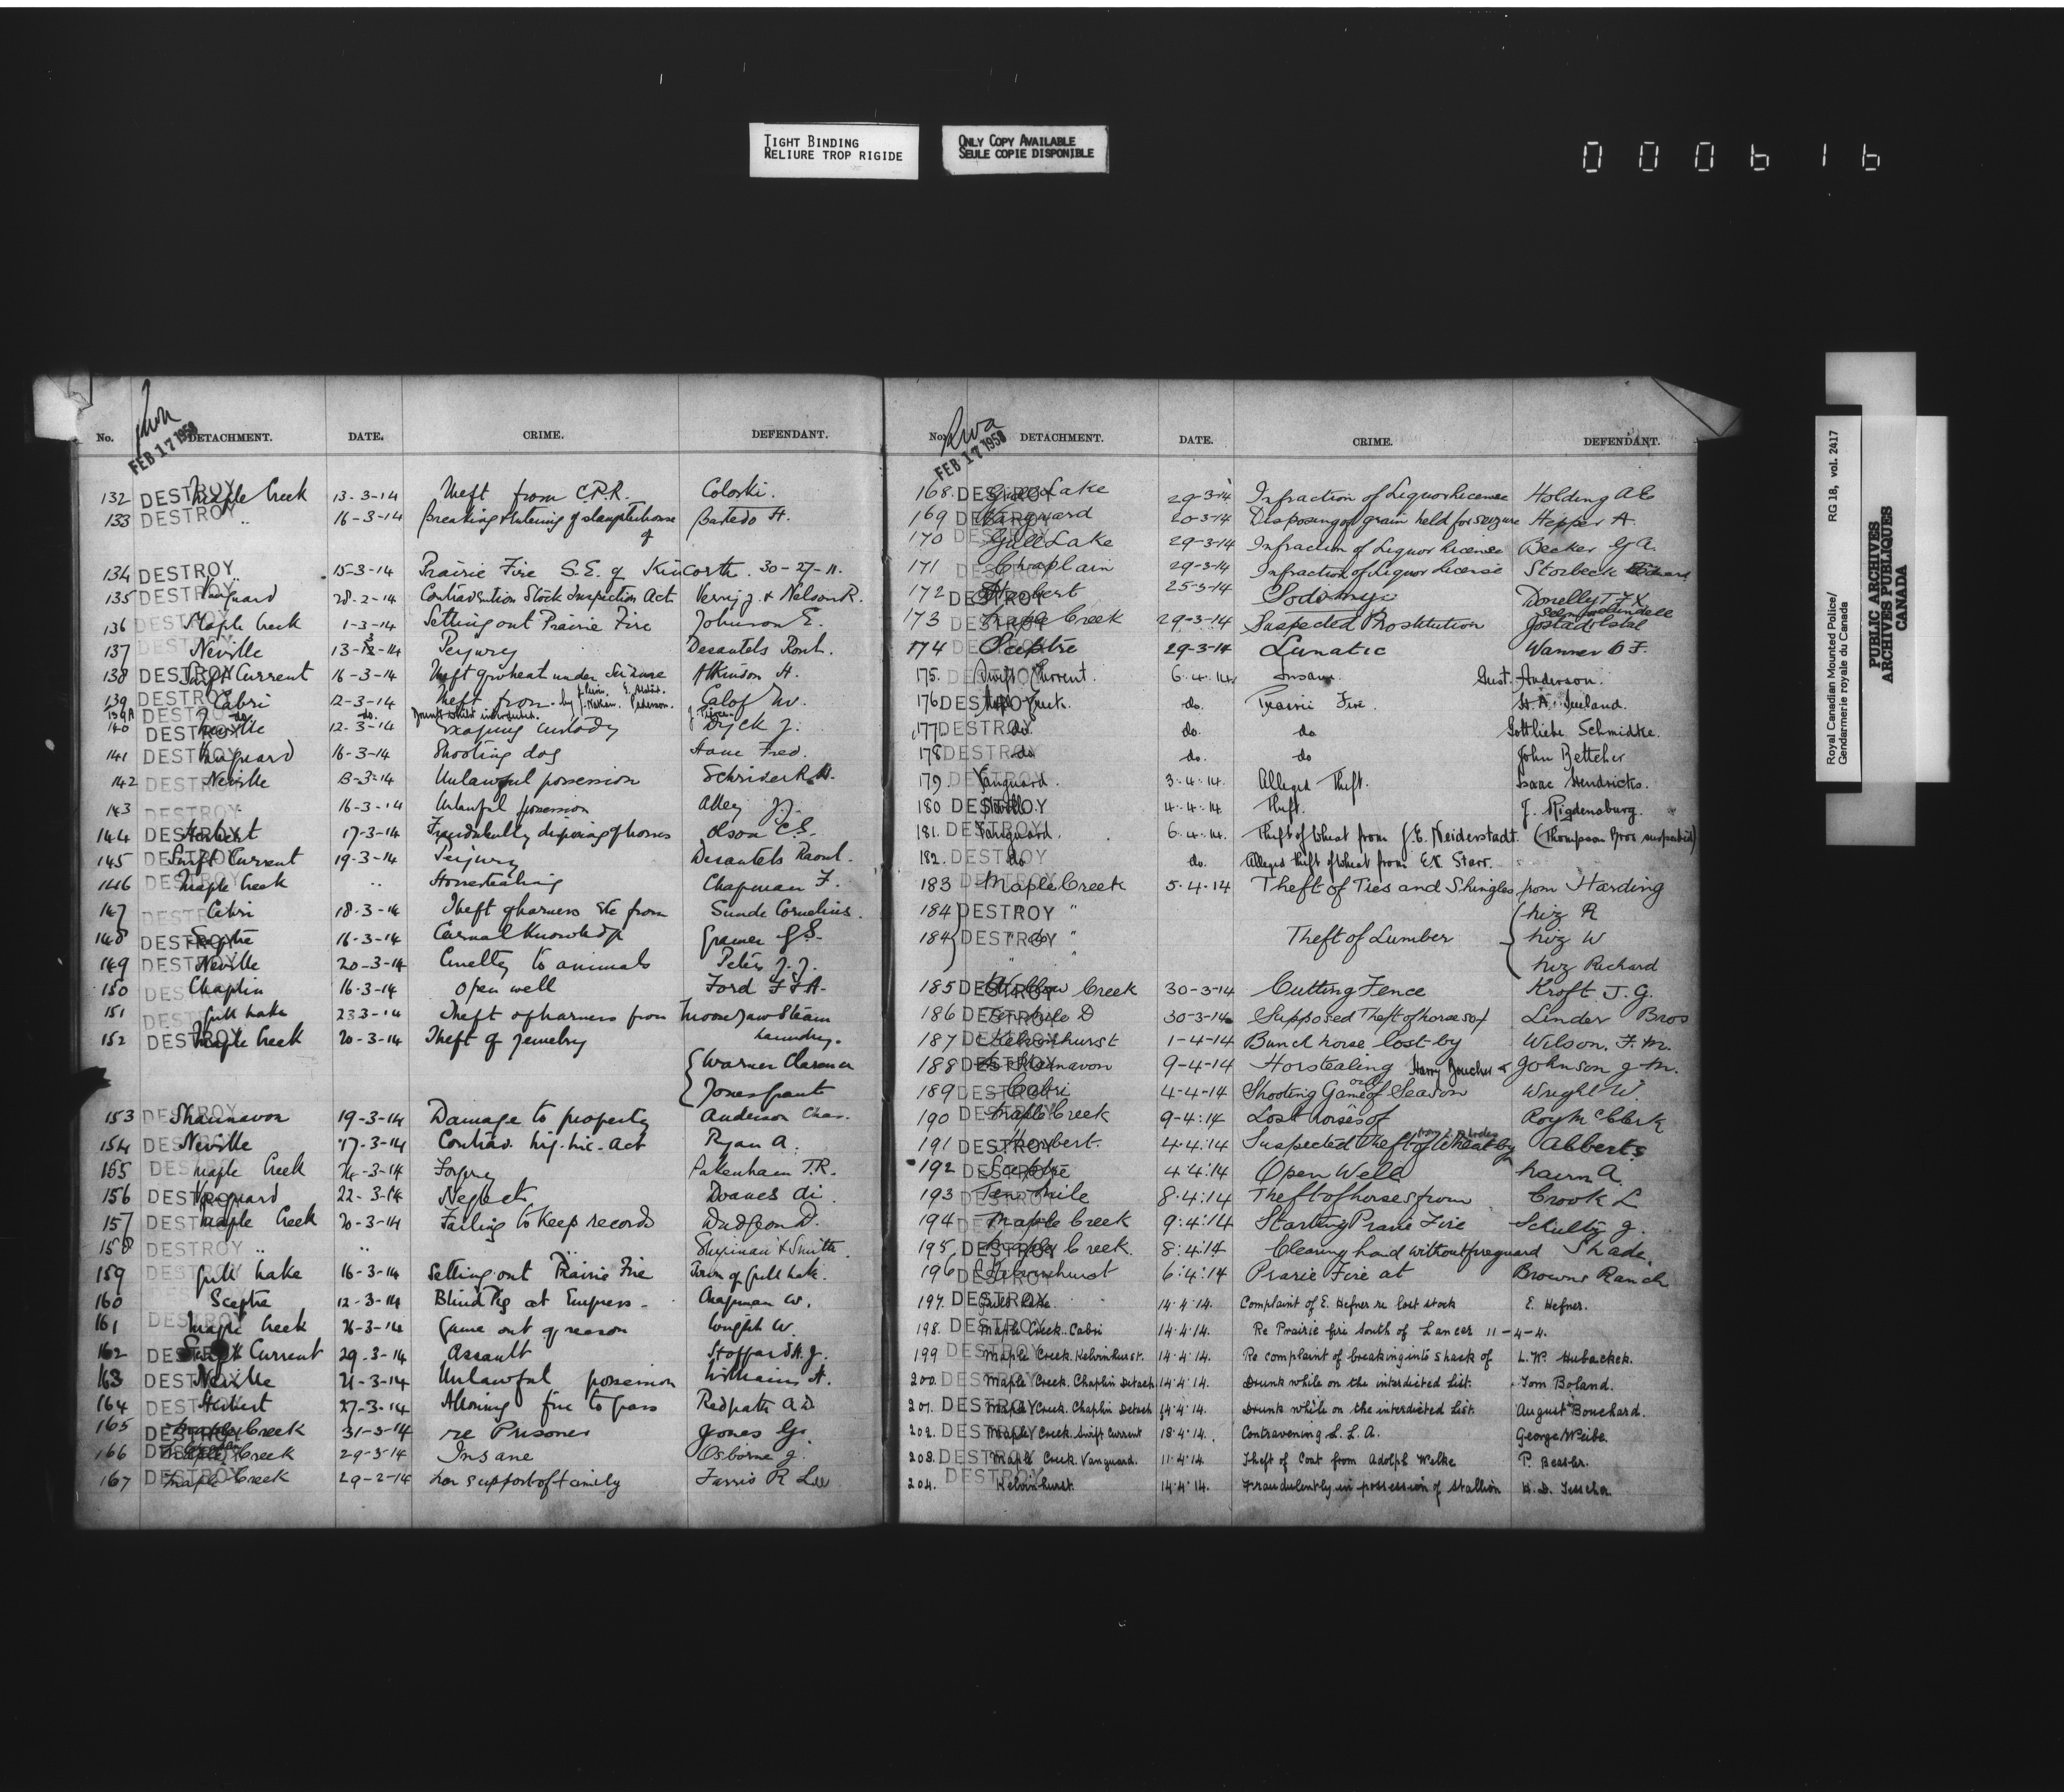 TIGHT BINDING
RELIURE TROP RIGIDE
ONLY COPY AVAILABLE
SEULE COPIE DISPONIBLE
000616
Royal Canadian Mounted Police/ RG 18, vol. 2417
Gendarmerie royale du Canada
PUBLIC ARCHIVES
ARCHIVES PUBLIQUES
CANADA
FEB 17 1958
No. DETACHMENT. DATE. CRIME. DEFENDANT.
132 DESTROY Maple Creek 13-3-14 Theft from C.P.R. Coloski.
133 DESTROY " 16-3-14 Breaking & entering of slaughterhouse of H.
134 DESTROY 15-3-14 Prairie Fire S.E. of Kincorth. 30-27-11.
135 DESTROY Vanguard 28-2-14 Contravention Stock Inspection Act J. & Nelson R.
136 DESTROY Maple Creek 1-3-14 Setting out Prairie Fire Johnson E.
137 DESTROY Neville 13-3-14 Perjury Desautels
138 DESTROY Swift Current 16-3-14 Theft of wheat under Seizure Atkinson H.
139 DESTROY Cabri 12-3-14 Theft from Calof
139A DESTROY do. do. Drunk whilst interdicted.
140 DESTROY Neville 12-3-14 Escaping custody Dyck J.
141 DESTROY Vanguard 16-3-14 Shooting dog Fred.
142 DESTROY Neville 13-3-14 Unlawful possession Schrider R.
143 DESTROY 16-3-14 Unlawful possession J.J.
144 DESTROY Herbert 17-3-14 Fraudulently disposing of horses Olson C.S.
145 DESTROY Swift Current 19-3-14 Perjury Desautels Raoul.
146 DESTROY Maple Creek " Horsestealing Chapman F.
147 DESTROY Cabri 18-3-14 Theft of harness etc from Sunde Cornelius.
148 DESTROY Sceptre 16-3-14 Carnal Knowledge G.S.
149 DESTROY Neville 20-3-14 Cruelty to animals Peters J.J.
150 DESTROY Chaplin 16-3-14 Open well Ford F.F.A.
151 DESTROY Gull Lake 23-3-14 Theft of harness from Moose Jaw Steam
152 DESTROY Maple Creek 20-3-14 Theft of Jewelry Laundry.
Warner Clarence
Jones Grant
153 DESTROY Shaunavon 19-3-14 Damage to property Anderson Chas.
154 DESTROY Neville 17-3-14 Contrav. Liq. Lic. Act Ryan A.
155 DESTROY Maple Creek 24-3-14 Forgery Pakenham T.R.
156 DESTROY Vanguard 22-3-14 Neglect
157 DESTROY Maple Creek 20-3-14 Failing to keep records Dudgeon D.
158 DESTROY " " " & Smith.
159 DESTROY Gull Lake 16-3-14 Setting out Prairie Fire Town of Gull Lake.
160 Sceptre 12-3-14 Blind Pig at Empress Chapman W.
161 DESTROY Maple Creek 26-3-14 Game out of season Wright W.
162 DESTROY Swift Current 29-3-14 Assault
163 DESTROY Neville 21-3-14 Unlawful possession Williams A.
164 DESTROY Herbert 27-3-14 Allowing fire to pass Redpath A.D.
165 DESTROY Maple Creek 31-3-14 re Prisoner Jones G.
166 DESTROY Maple Creek 29-3-14 Insane Osborne J.
167 DESTROY Maple Creek 29-2-14 Non support of family Farris R Lee
FEB 17 1958
No. DETACHMENT. DATE. CRIME. DEFENDANT.
168 DESTROY Gull Lake 29-3-14 Infraction of Liquor License Holding A.E.
169 DESTROY Vanguard 20-3-14 Disposing of grain held for seizure Hepper A.
170 DESTROY Gull Lake 29-3-14 Infraction of Liquor License Becker G.A.
171 DESTROY Chaplain 29-3-14 Infraction of Liquor License Storbeck
172 DESTROY Herbert 25-3-14 Sodomy Donelly
173 DESTROY Maple Creek 29-3-14 Suspected Prostitution
174 DESTROY Sceptre 29-3-14 Lunatic Wanner
175. DESTROY Swift Current. 6.4.14 Insane Gust. Anderson.
176 DESTROY Maple Creek. do. Prairie Fire. H.A. Ireland.
177 DESTROY do. do. do Gottliebe Schmidke.
178 DESTROY do do. do John Bettcher
179. DESTROY Vanguard. 3.4.14. Alleged Theft. Isaac Hendricks.
180 DESTROY Neville. 4.4.14. Theft. J. Rigdensburg.
181. DESTROY Vanguard. 6.4.14. Theft of Wheat from J.E. Neiderstadt. (Thompson Bros suspected)
182. DESTROY do do. Alleged theft of wheat from Starr.
183 DESTROY Maple Creek 5.4.14 Theft of Ties and Shingles from Harding
184 DESTROY " R
184 DESTROY " do " Theft of Lumber W
" " Richard
185 DESTROY Willow Creek 30-3-14 Cutting Fence Kroft J.G.
186 DESTROY Ten Mile D 30-3-14 Supposed Theft of horses of Linder Bros
187 DESTROY Kelvinhurst 1-4-14 Bunch horse lost by Wilson. F.M.
188 DESTROY Shaunavon 9-4-14 Horstealing Harry & Johnson J.M.
189 DESTROY Cabri 4-4-14 Shooting Game out of Season Wright W.
190 DESTROY Maple Creek 9-4-14 Lost horses of Roy McClerk
191 DESTROY Herbert. 4.4.14 Suspected Theft of Wheat by Abberts
192 DESTROY Sceptre 4.4.14 Open Well A.
193 DESTROY Ten Mile 8.4.14 Theft of horses from Crook L
194 DESTROY Maple Creek 9.4.14 Starting Prarie Fire Schultz J.
195 DESTROY Maple Creek. 8.4.14 Clearing land without fireguard Shade.
196 DESTROY Kelvinhurst 6.4.14 Prarie Fire at Browns Ranch
197. DESTROY Gull Lake. 14.4.14. Complaint of E. Hefner re lost stock E. Hefner.
198. DESTROY Maple Creek. Cabri 14.4.14. Re Prairie fire South of Lancer 11-4-4.
199 DESTROY Maple Creek. Kelvinhurst. 14.4.14. Re complaint of breaking into shack of L.W. Hubackek.
200. DESTROY Maple Creek. Chaplin Detach 14.4.14. Drunk while on the interdicted list. Tom Boland.
201. DESTROY Maple Creek. Chaplin Detach 14.4.14. Drunk while on the interdicted list. August Bouchard.
202. DESTROY Maple Creek. Swift Current 18.4.14. Contravening L.L.A. George Weibe.
203. DESTROY Maple Creek. Vanguard. 11.4.14. Theft of Coat from Adolph Welke P.
204. DESTROY Kelvinhurst 14.4.14. Fraudulently in possession of stallion H.D.